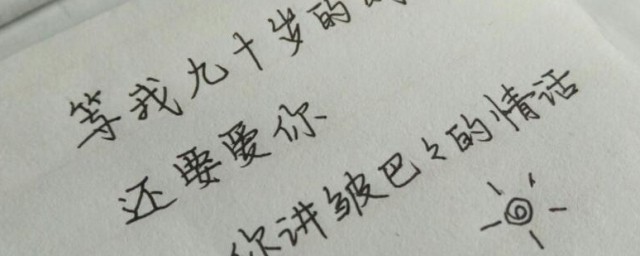 等我九十岁的
还要爱你
你讲皱巴々的情话